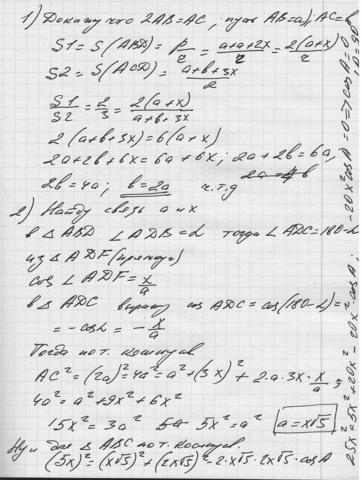 1) Докажу что 2AB=AC, пусть AB=a, AC=b
S1 = S(ABD) = p/2 = a+a+2x/2 = 2(a+x)/2
S2 = S(ACD) = a+b+3x/2
S1/S2 = 2/3 = 2(a+x)/a+b+3x
2(a+b+3x)=6(a+x)
2a+2b+6x=6a+6x; 2a+2b=6a,
2b=4a; b=2a ч.т.д
2) Найду связь a и x
в △ABD ∠ADB=α тогда ∠ADC=180-α
из △ADF (прямоуг)
cos ∠ADF = x/a
в △ADC выражу cos ADC = cos(180-α) =
= -cosα = -x/a
Тогда по т. косинусов
AC² = (2a)² = 4a² = a² + (3x)² + 2·a·3x·x/a;
4a² = a² + 9x² + 6x²
15x² = 3a² 5x² = a² a=x√5
Ну и для △ABC по т. косинусов.
(5x)² = (x√5)² + (2x√5)² - 2·x√5·2x√5·cosA
25x² = 5x² + 20x² - 20x² cosA; -20x² cosA = 0 => cosA = 0